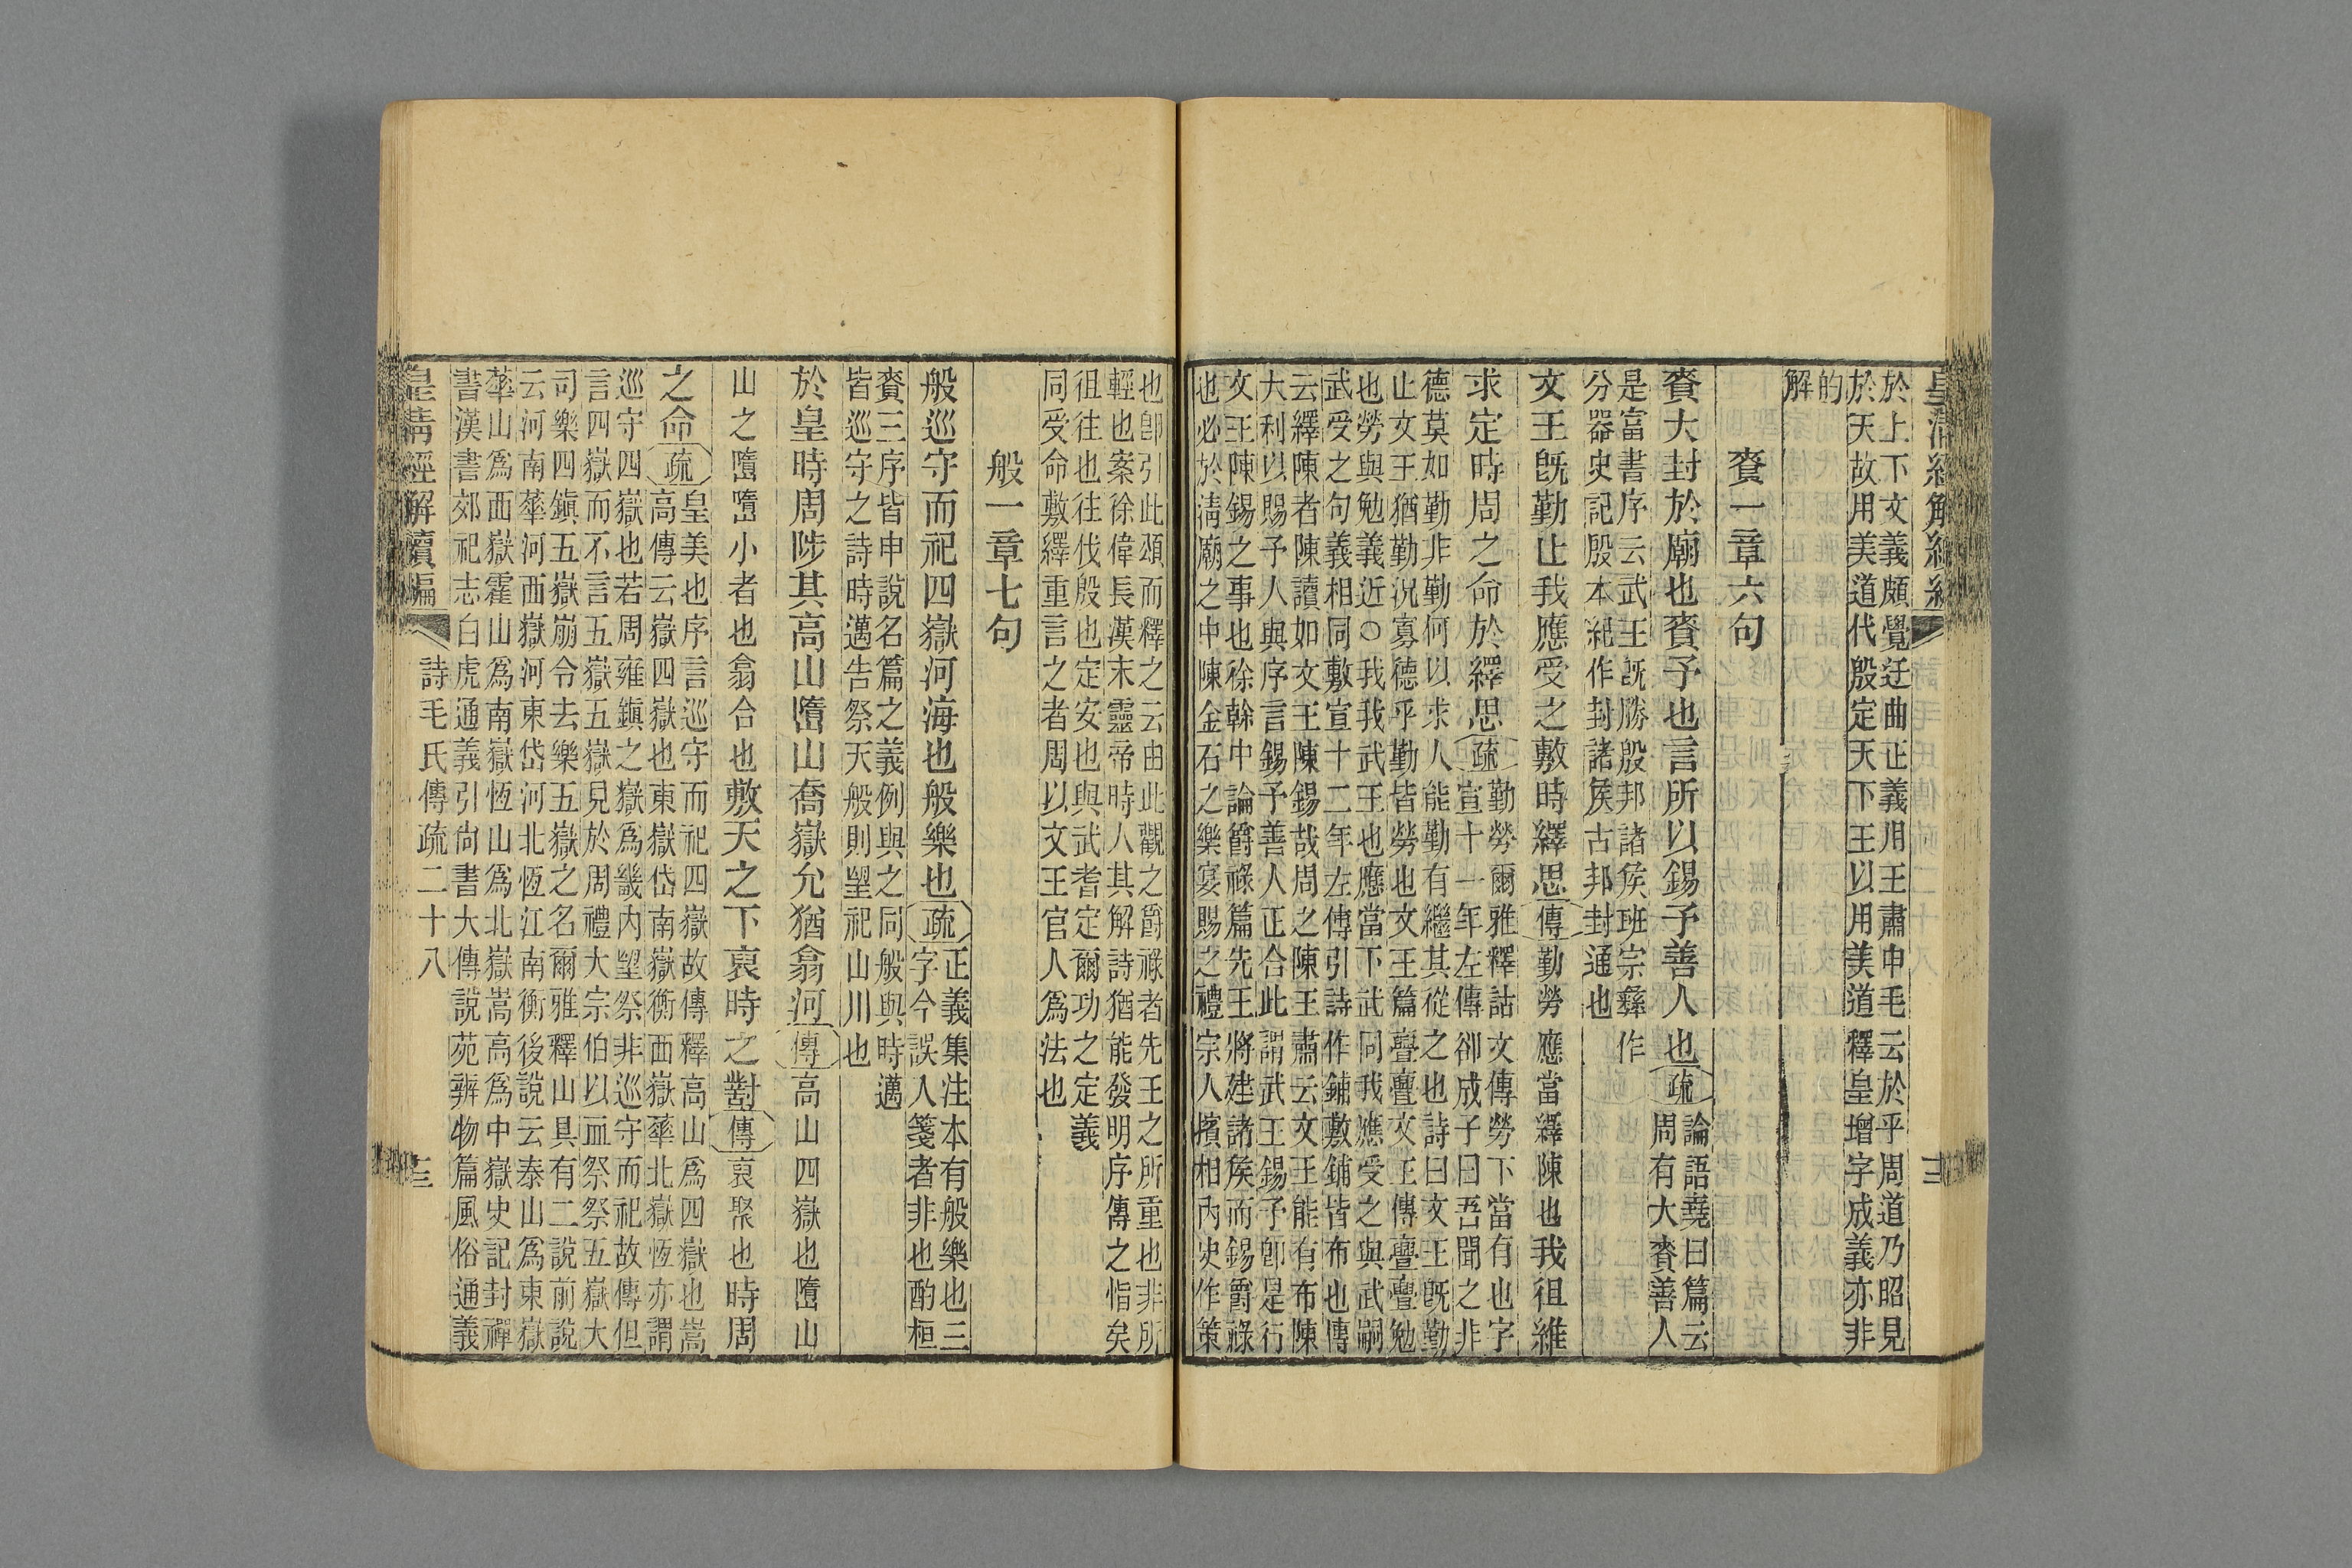 皇清經解續編
於上下文義頗覺迂曲正義用王肅申毛云於乎周道乃昭見
於天故用美道代殷定天下王以用美道釋皇增字成義亦非
的
解
賚一章六句
賚大封於廟也賚予也言所以錫予善人也疏論語堯曰篇云
周有大賚善人
是富書序云武王旣勝殷邦諸侯班宗彝作
分器史記殷本紀作封諸侯古邦封通也
文王旣勤止我應受之敷時繹思傳勤勞應當繹陳也我徂維
求定時周之命於繹思疏勤勞爾雅釋詁文傳勞下當有也字
宣十一年左傳卻成子曰吾聞之非
德莫如勤非勤何以求人能勤有繼其從之也詩曰文王旣勤
止文王猶勤況寡德乎勤皆勞也文王篇亹亹文王傳亹亹勉
也勞與勉義近○我我武王也應當下武同我應受之與武嗣
武受之句義相同敷宣十二年左傳引詩作鋪敷鋪皆布也傳
云繹陳者陳讀如文王陳錫哉周之陳王肅云文王能有布陳
大利以賜予人與序言錫予善人正合此謂武王錫予卽是行
文王陳錫之事也徐幹中論爵祿篇先王將建諸侯而錫爵祿
也必於淸廟之中陳金石之樂宴賜之禮宗人擯相內史作策
也卽引此頌而釋之云由此觀之爵祿者先王之所重也非所
輕也案徐偉長漢末靈帝時人其解詩猶能發明序傳之恉矣
徂往也往伐殷也定安也與武耆定爾功之定義
同受命敷繹重言之者周以文王官人爲法也
般一章七句
般巡守而祀四嶽河海也般樂也疏正義集注本有般樂也三
字今誤入箋者非也酌桓
賚三序皆申說名篇之義例與之同般與時邁
皆巡守之詩時邁告祭天般則朢祀山川也
於皇時周陟其高山嶞山喬嶽允猶翕河傳高山四嶽也嶞山
山之嶞嶞小者也翕合也敷天之下裒時之對傳裒聚也時周
之命疏皇美也序言巡守而祀四嶽故傳釋高山爲四嶽也嵩
高傳云嶽四嶽也東嶽岱南嶽衡西嶽華北嶽恆亦謂
巡守四嶽也若周雍鎭之嶽爲畿內朢祭非巡守而祀故傳但
言四嶽而不言五嶽五嶽見於周禮大宗伯以血祭祭五嶽大
司樂四鎭五嶽崩令去樂五嶽之名爾雅釋山具有二說前說
云河南華河西嶽河東岱河北恆江南衡後說云泰山爲東嶽
華山爲西嶽霍山爲南嶽恆山爲北嶽嵩高爲中嶽史記封禪
書漢書郊祀志白虎通義引尙書大傳說苑辨物篇風俗通義
皇清經解續編
詩毛氏傳疏二十八